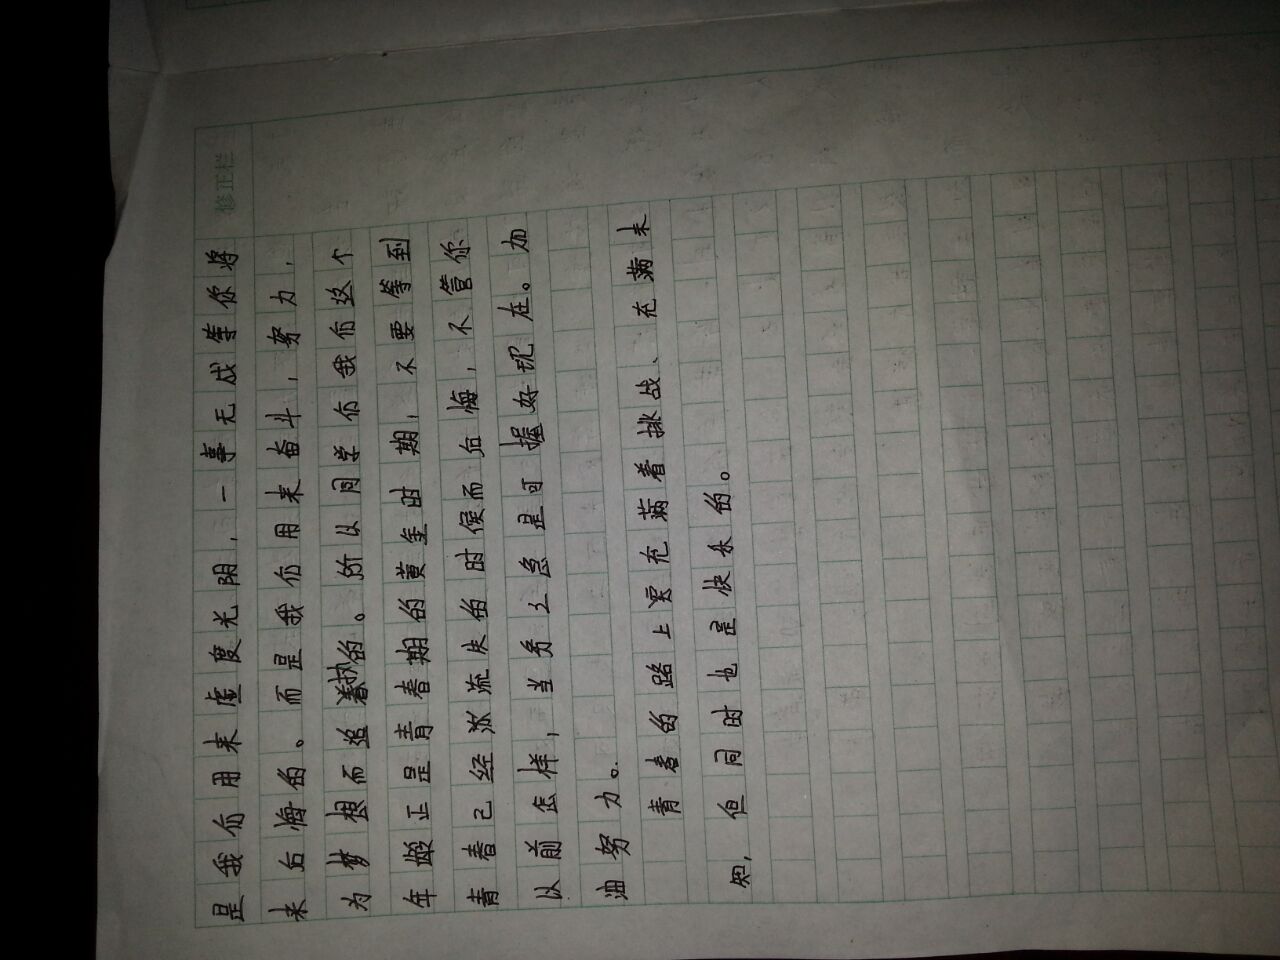 修正栏
是我们用来虚度光阴,一事无成等你将
来后悔的。而是我们用来奋斗,努力,
为梦想而追的。所以同学们我们这个
年龄正是青春期的黄金时期,不要等到
青春已经流失的时侯而后悔,不管你
以前怎样,当务之急是可握好现在。加
油努力。
青春的路上充满着挑战、充满未
知,但同时也是快乐的。